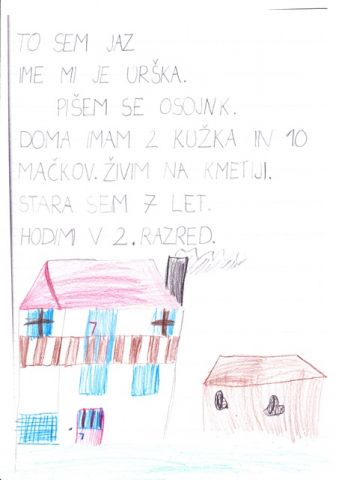 TO SEM JAZ
IME MI JE URŠKA.
PIŠEM SE OSOJNK.
DOMA IMAM 2 KUŽKA IN 10
MAČKOV. ŽIVIM NA KMETIJI.
STARA SEM 7 LET.
HODIMI V 2. RAZRED.